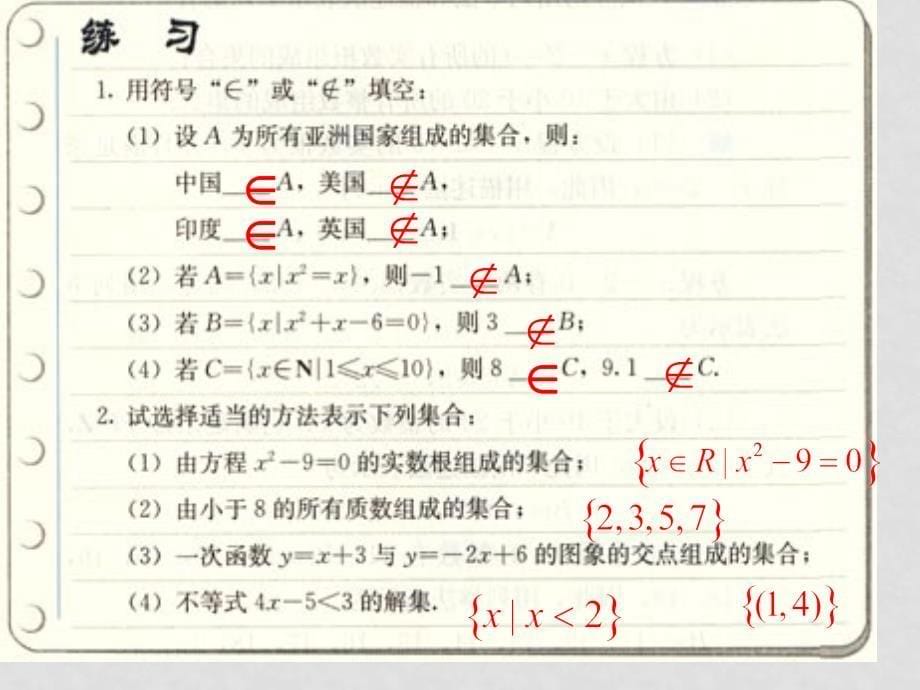 练 习
1. 用符号“∈”或“∉”填空:
(1) 设 A 为所有亚洲国家组成的集合，则:
中国 ∈ A，美国 ∉ A，
印度 ∈ A，英国 ∉ A;
(2) 若 A={x|x²=x}，则-1 ∉ A;
(3) 若 B={x|x²+x-6=0}，则 3 ∉ B;
(4) 若 C={x∈N|1≤x≤10}，则 8 ∈ C，9.1 ∉ C.
2. 试选择适当的方法表示下列集合:
(1) 由方程 x²-9=0 的实数根组成的集合; {x∈R|x²-9=0}
(2) 由小于 8 的所有质数组成的集合; {2,3,5,7}
(3) 一次函数 y=x+3 与 y=-2x+6 的图象的交点组成的集合;
(4) 不等式 4x-5<3 的解集. {x|x<2} {(1,4)}